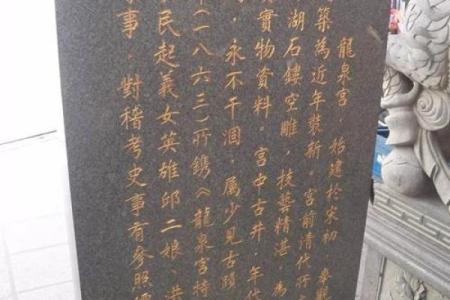 龍泉宮，始建於宋初，
築為近年裝新。宮前清代所
湖石鏤空雕，技藝精湛，為
實物資料。宮中古井，年代
，永不干涸，屬少見古蹟
（一八六三）所鐫《龍泉宮特
民起義女英雄邱二娘、洪
事，對稽考史事有參照